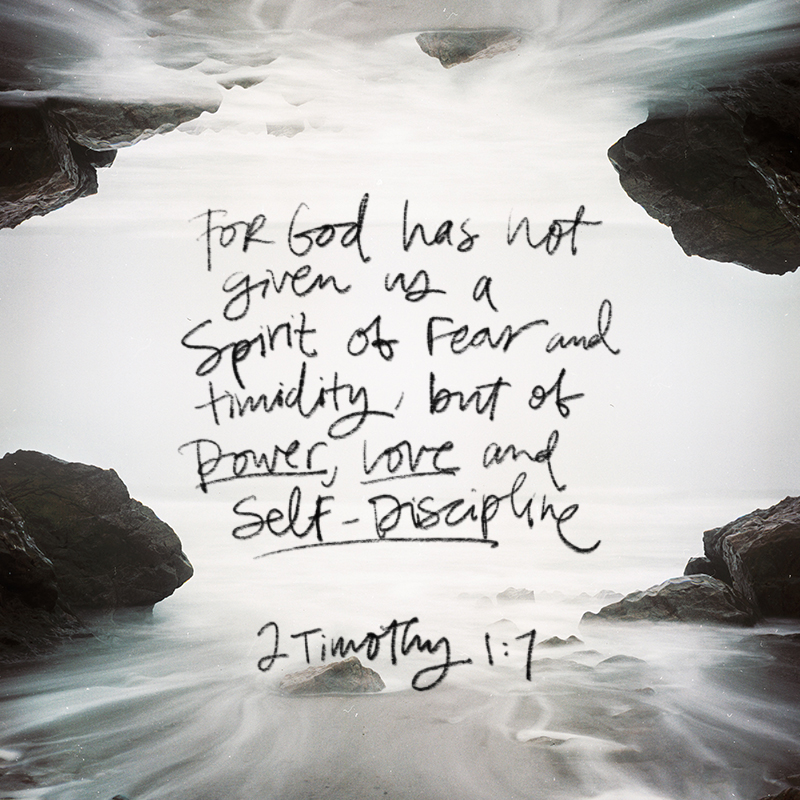 For God has not
given us a
Spirit of Fear and
timidity, but of
Power, Love and
Self-Discipline
2 Timothy 1:7